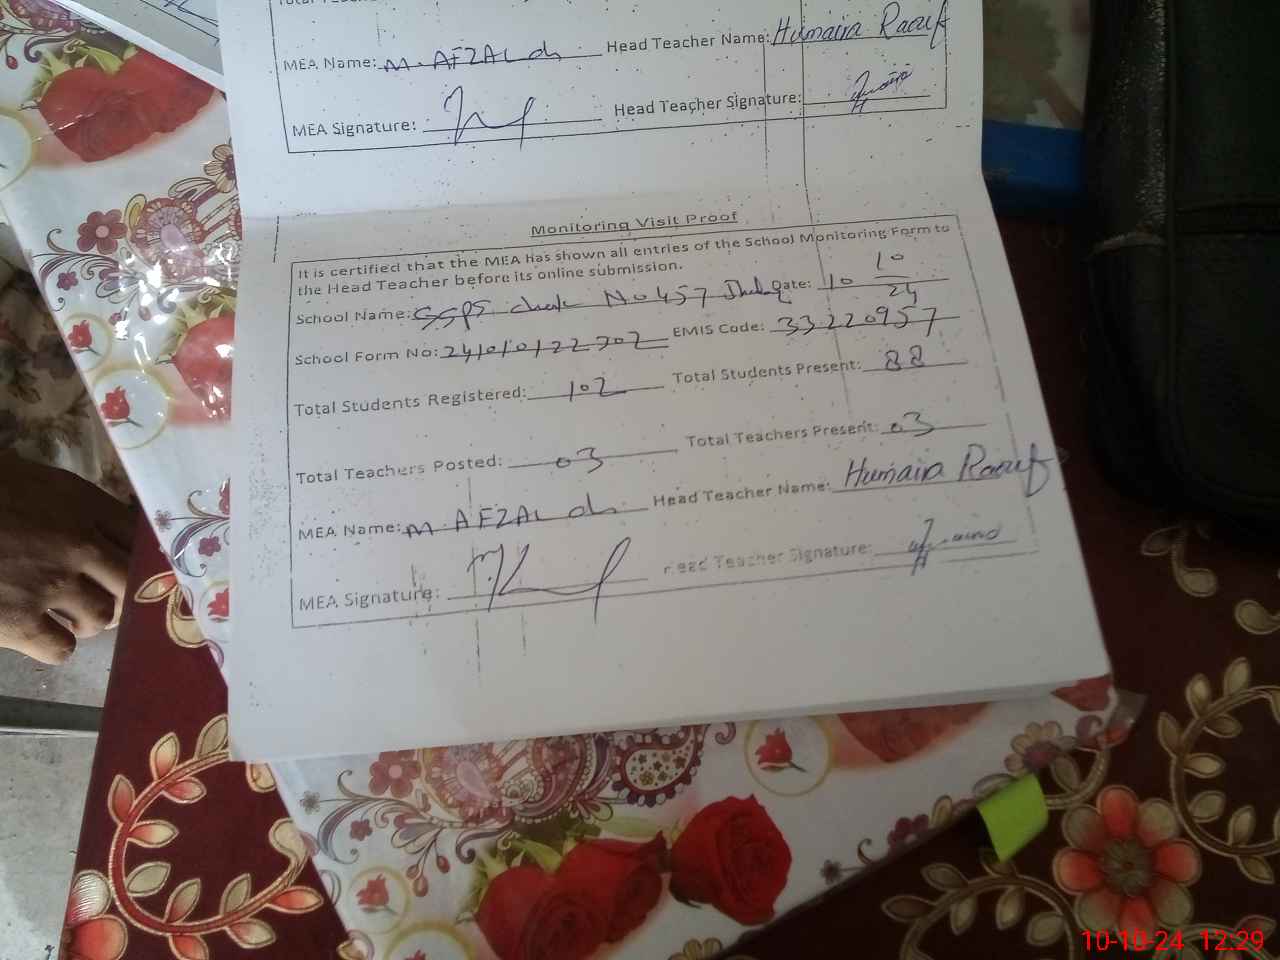 MEA Name: M. AFZAL ch Head Teacher Name: Humaira Raouf
MEA Signature: Head Teacher Signature: Humaira
Monitoring Visit Proof
It is certified that the MEA has shown all entries of the School Monitoring Form to
the Head Teacher before its online submission.
School Name: GGPS chak No 457 Date: 10 10/24
School Form No: EMIS Code: 33220957
Total Students Registered: 102 Total Students Present: 88
Total Teachers Posted: 03 Total Teachers Present: 03
MEA Name: M AFZAL ch Head Teacher Name: Humaira Raouf
MEA Signature: Head Teacher Signature:
10-10-24 12:29